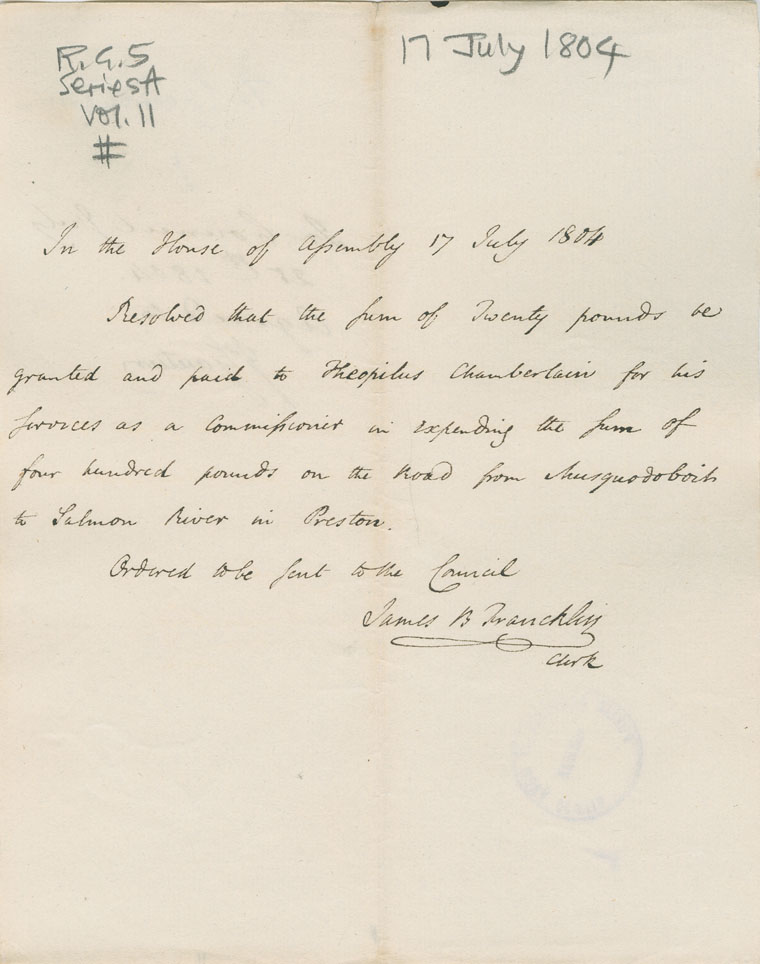 R.G.5
Series A
Vol. 11
#
17 July 1804
In the House of Assembly 17 July 1804
Resolved that the sum of Twenty pounds be
granted and paid to Theopilus Chamberlain for his
services as a Commissioner in expending the sum of
four hundred pounds on the Road from Musquodoboit
to Salmon River in Preston.
Ordered to be sent to the Council
James B Franckling
Clerk